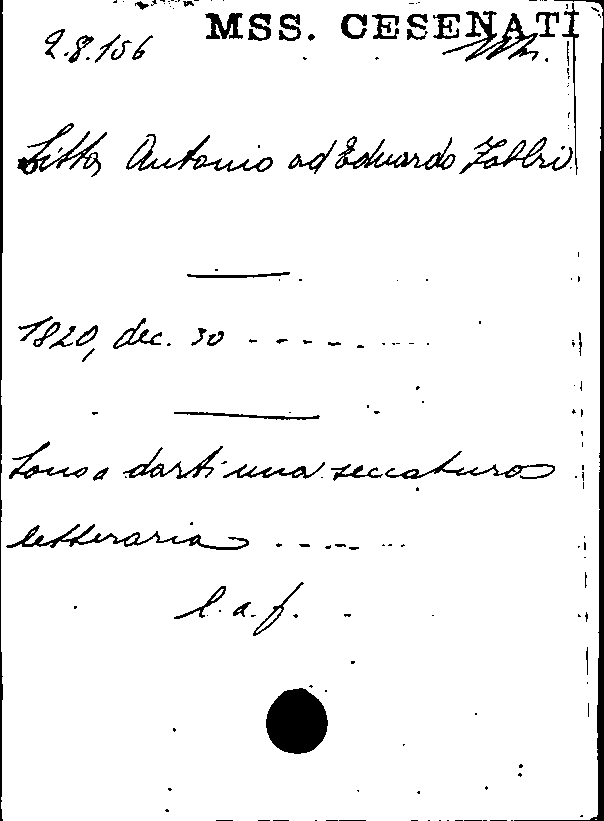 MSS. CESENATI
2.8.156
Sitta Antonio ad Eduardo Fabbri
1820, dec. 30 - - - - - - - -
Sono a darti una seccatura
letteraria - - - - - - -
l. a. f.